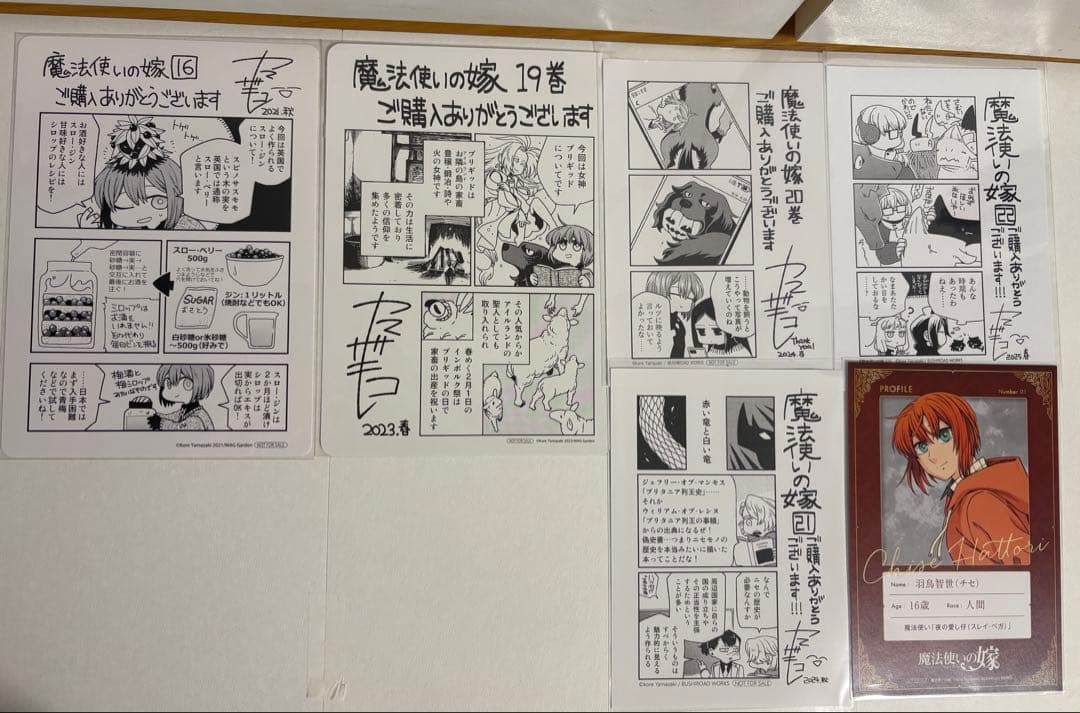 魔法使いの嫁 16
ご購入ありがとうございます
2021.秋
今回は英国で
よく作られる
スロージン
について！
トゲ
トゲ
スピノサスモモ
という木の実を
英国では通称
スローベリー
と言います
お酒好きな人には
スロージン
甘味好きな人には
シロップのレシピを！
密閉容器に
砂糖→実→
砂糖→実…と
交互に入れて
最後にお酒を
注ぐわ
シロップは
お酒を
いれません!!
スロー・ベリー
500g
SUGAR
おさとう
ジン：1リットル
(焼酎などでもOK)
白砂糖or氷砂糖
〜500g(好みで)
スロージンは
2か月ほど漬け
シロップは
実からエキスが
出切ればOK
梅酒と
梅シロップ
みたいなものです
…日本では
まず入手困難
なので青梅
などで試して
くださいね！
©Kore Yamazaki 2021/MAG Garden NOT FOR SALE
魔法使いの嫁 19巻
ご購入ありがとうございます
今回は女神
ブリギッド
についてです
ブリギッドは
お隣の島の家畜
豊穣・鍛冶・詩や
火の女神です
その力は生活に
密着しており
多くの信仰を
集めたようです
その人気からか
アイルランドの
聖人としても
取り入れられ
春めく2月1日の
インボルク祭は
ブリギッドの日で
家畜の出産を祝います
2023.春
NOT FOR SALE ©Kore Yamazaki 2023/MAG Garden
魔法使いの嫁 20巻
ご購入ありがとうございます
動物を飼うと
こうやって写真が
増えていくのね
ルツに映るよう
言っておいて
よかったな
Thank you!
2024.春
©Kore Yamazaki / BUSHIROAD WORKS NOT FOR SALE
魔法使いの嫁 22
ご購入ありがとう
ございます!!!
あんな
時期も
あったわ
ねえ…
なまあたた
かい目を
しておるな
2025.春
魔法使いの嫁 21
ご購入ありがとう
ございます!!!
赤い竜と白い竜
ジェフリー・オブ・マンモス
「ブリタニア列王史」……
それか
ウィリアム・オブ・レンヌ
「ブリタニア列王の事績」
からの出典になるぜ！
偽史書…つまりニセモノの
歴史を本当みたいに描いた
本ってことだな！
なんで
ニセの歴史が
必要なんすか
周辺国家に自らの
国の成り立ちや
その正当性を主張
するためという
ことが多い
そういうものは
すべからく
魅力的に見える
よう作られる
2024.秋
©Kore Yamazaki / BUSHIROAD WORKS NOT FOR SALE
PROFILE
Number 01
Chise Hattori
Name : 羽鳥智世(チセ)
Age : 16歳 Race : 人間
魔法使い「夜の愛し仔(スレイ・ベガ)」
魔法使いの嫁